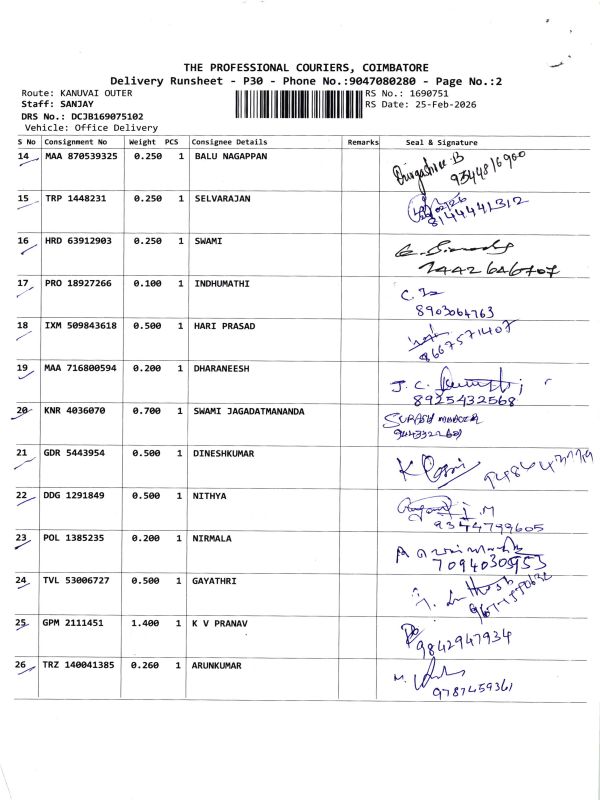 THE PROFESSIONAL COURIERS, COIMBATORE
Delivery Runsheet - P30 - Phone No.:9047080280 - Page No.:2
Route: KANUVAI OUTER RS No.: 1690751
Staff: SANJAY RS Date: 25-Feb-2026
DRS No.: DCJB169075102
Vehicle: Office Delivery
S No Consignment No Weight PCS Consignee Details Remarks Seal & Signature
14 MAA 870539325 0.250 1 BALU NAGAPPAN
9344816900
15 TRP 1448231 0.250 1 SELVARAJAN
8144441312
16 HRD 63912903 0.250 1 SWAMI
7442646707
17 PRO 18927266 0.100 1 INDHUMATHI
8903064763
18 IXM 509843618 0.500 1 HARI PRASAD
8667571407
19 MAA 716800594 0.200 1 DHARANEESH
J. C.
8925432568
20 KNR 4036070 0.700 1 SWAMI JAGADATMANANDA
21 GDR 5443954 0.500 1 DINESHKUMAR
22 DDG 1291849 0.500 1 NITHYA
9344799605
23 POL 1385235 0.200 1 NIRMALA
7094030953
24 TVL 53006727 0.500 1 GAYATHRI
25 GPM 2111451 1.400 1 K V PRANAV
9842947934
26 TRZ 140041385 0.260 1 ARUNKUMAR
9787459361